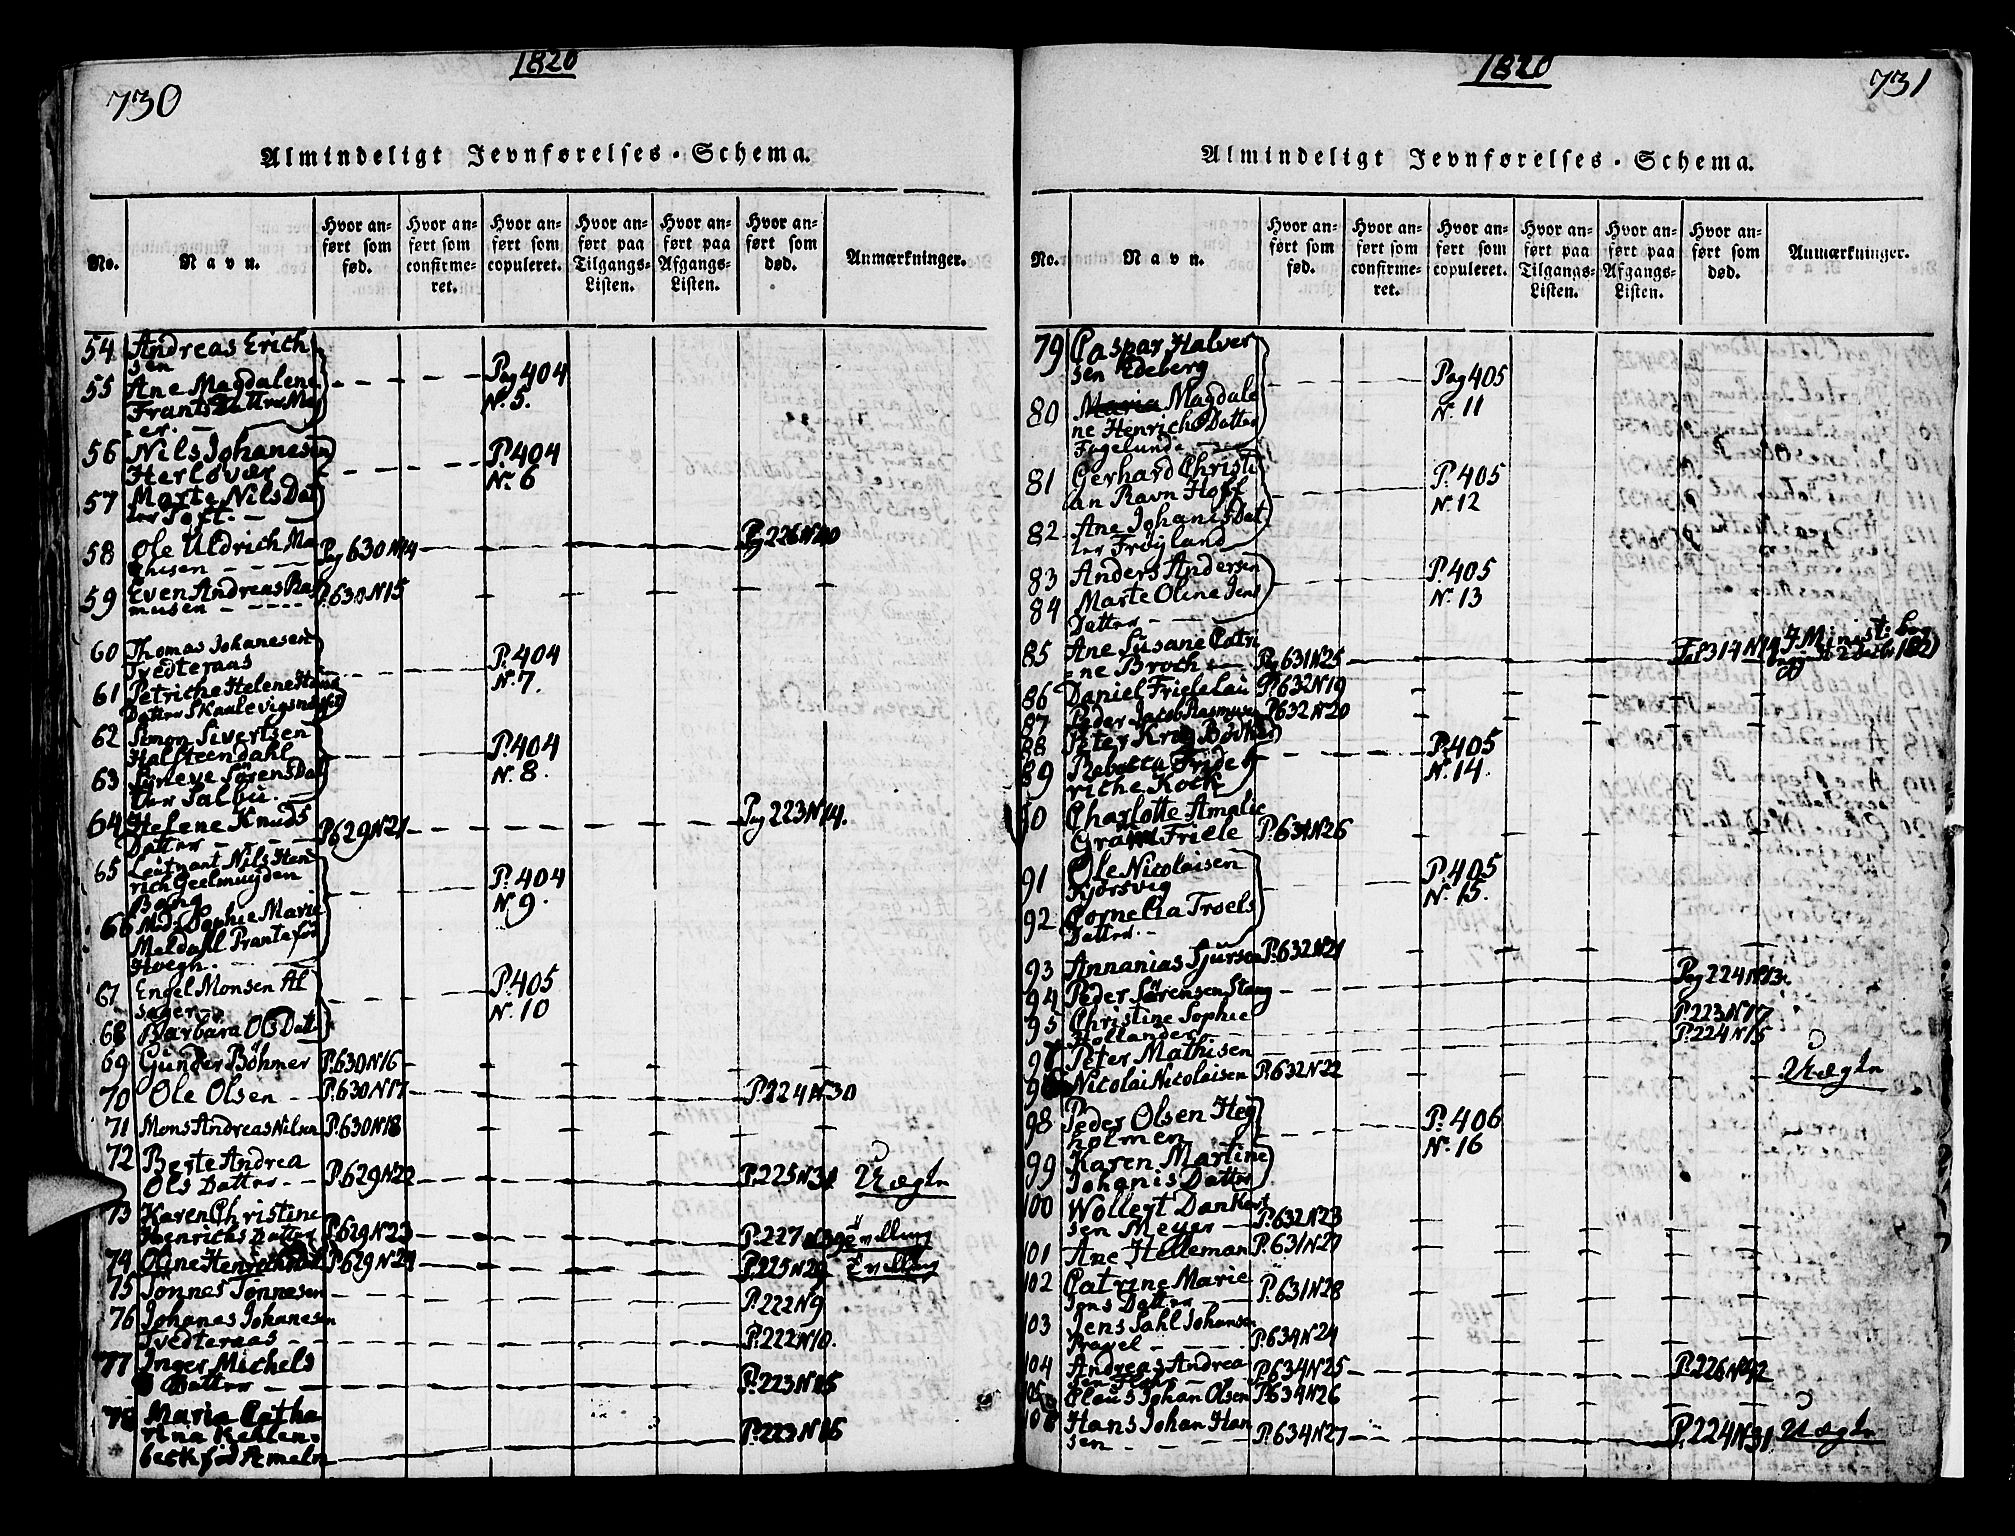 1820
730
Almindeligt Jevnførelses-Schema.
No.
Navn.
Hvor anført som fød.
Hvor anført som confirmeret.
Hvor anført som copuleret.
Hvor anført paa Tilgangs-Listen.
Hvor anført paa Afgangs-Listen.
Hvor anført som død.
Anmærkninger.
54 Andreas Erich
sen
55 Ane Magdalene Pag 404
Frants Datter May N. 5.
er.
56 Nils Johanesen P. 404
Herløvær N. 6
57 Marte Nils Dat
ter Toft.
58 Ole Uldrich Ma Pag 630 N14 Pag 226 N40
thisen
59 Even Andreas Ras P. 630 N15
musen
60 Thomas Johanesen P. 404
Tvedteraas N. 7.
61 Petriche Helene Hans
Datter Skaalevigsnæsset
62 Simon Sivertsen P. 404
Halsteendahl N. 8.
63 Syneve Sørens Dat
ter Salbu.
64 Helene Knuds P. 629 N21 Pag 223 N14.
Datter
65 Leutnant Nils Hen P. 404
rich Geelmuyden N 9.
Bøng
66 Md. Sophie Marie
Meldahl Prante fød
Høegh.
67 Engel Monsen Al P. 405
sager N. 10
68 Barbara Ols Dat
69 Gunder Bøhmer P. 630 N16
70 Ole Olsen P. 630 N17 P. 224 N30
71 Mons Andreas Nilsen P. 630 N18
72 Berte Andrea P. 629 N22 P. 225 N31 Uægte
Ols Datter
73 Karen Christine
Henrichs Datter P. 629 N23 P. 227 N39 Tvilling
74 Oline Henrichs Dat P. 629 N24 P. 225 N29 Tvilling
75 Tønnes Tønnesen P. 222 N9
76 Johanes Johanesen
Tvedteraas P. 222 N10.
77 Inger Michels
Datter P. 223 N15
78 Maria Catha
rina Kehlen
beck fød Ameln P. 223 N16
1820
731
Almindeligt Jevnførelses-Schema.
No.
Navn.
Hvor anført som fød.
Hvor anført som confirmeret.
Hvor anført som copuleret.
Hvor anført paa Tilgangs-Listen.
Hvor anført paa Afgangs-Listen.
Hvor anført som død.
Anmærkninger.
79 Caspar Halver
sen Edeberg Pag 405
80 Maria Magdale N. 11
ne Henrichs Datter
Figelunde
81 Gerhard Christi P. 405
an Ravn Hoff N. 12
82 Ane Johanis Dat
ter Frøyland
83 Anders Andersen P. 405
84 Marte Oline Jens N. 13
Datter
85 Ane Susane Catri
ne Broch Pag 631 N25 Fol 314 N14
86 Daniel Friele Lai P. 632 N19
87 Peder Jacob Rasmusen P. 632 N20
88 Peter Krog Bøvhed P. 405
89 Rebecca Fride N. 14.
riche Kock
90 Charlotte Amalie
Gram Friele P. 631 N26
91 Ole Nicolaisen P. 405
Kjørsvig N. 15.
92 Cornelia Troels
Datter.
93 Annanias Sjursen P. 632 N21
94 Peder Sørensen Stang Pag 224 N23.
95 Christine Sophie
Hollander P. 223 N17
96 Peter Mathisen P. 224 N15
97 Nicolai Nicolaisen P. 632 N22 Uægte
98 Peder Olsen Heg P. 406
holmen N. 16
99 Karen Martine
Johanis Datter
100 Wollegt Dankert
sen Meyer P. 632 N23
101 Ane Helleman P. 631 N27
102 Catrine Marie
Jens Datter P. 631 N28
103 Jens Dahl Johansen
Pravel P. 634 N24
104 Andreas Andrea P. 634 N25 P. 226 N42
sen
105 Claus Johan Olsen P. 634 N26
106 Hans Johan Han
sen P. 634 N27 P. 224 N31 Uægte